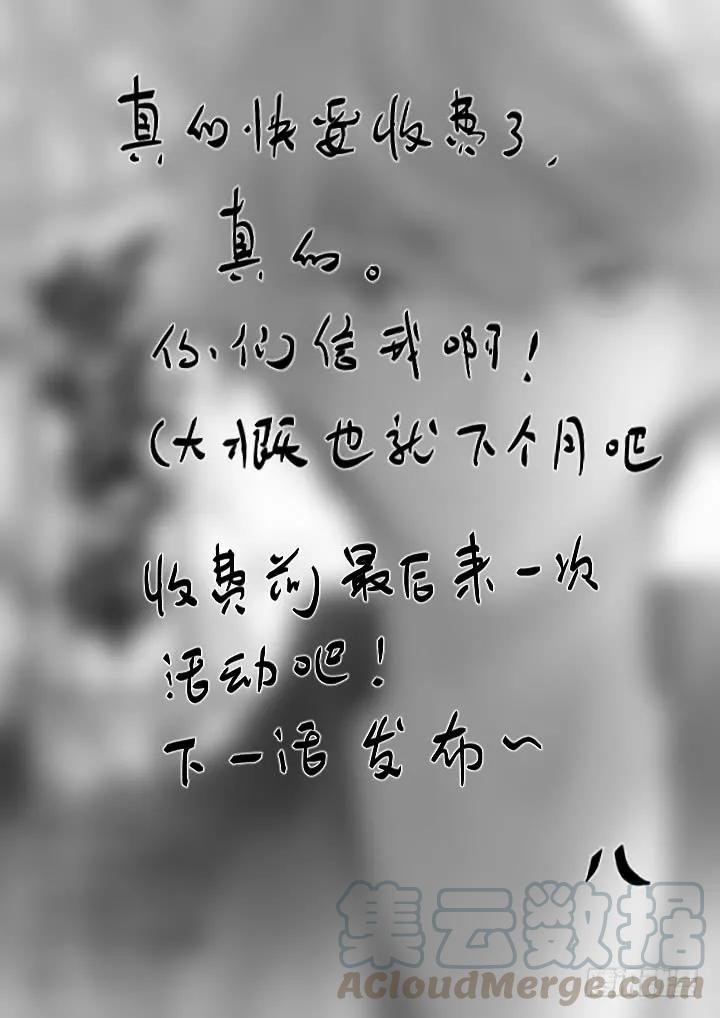 真的快要收费了，
真的。
你们信我啊！
（大概也就下个月吧
收费前最后来一次
活动吧！
下一话发布~
八
集云数据
ACloudMerge.com